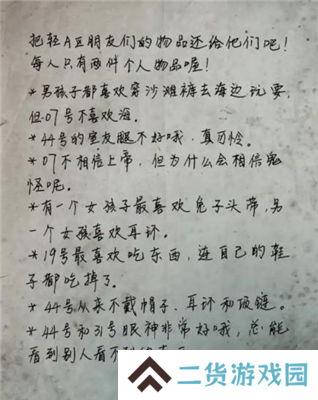 把轻A区朋友们的物品还给他们吧！
每人只有两件个人物品喔！
*男孩子都喜欢穿沙滩裤去海边玩耍，
但07号不喜欢海。
*44号的室友腿不好哦，真可怜。
*07不相信上帝，但为什么会相信鬼
怪呢。
*有一个女孩子最喜欢兔子头带，另
一个女孩喜欢耳环。
*19号最喜欢吃东西，连自己的鞋
子都吃掉了。
*44号从来不戴帽子、耳环和项链。
*44号和31号眼神非常好哦，总能
看到别人看不到的东西
二货游戏园